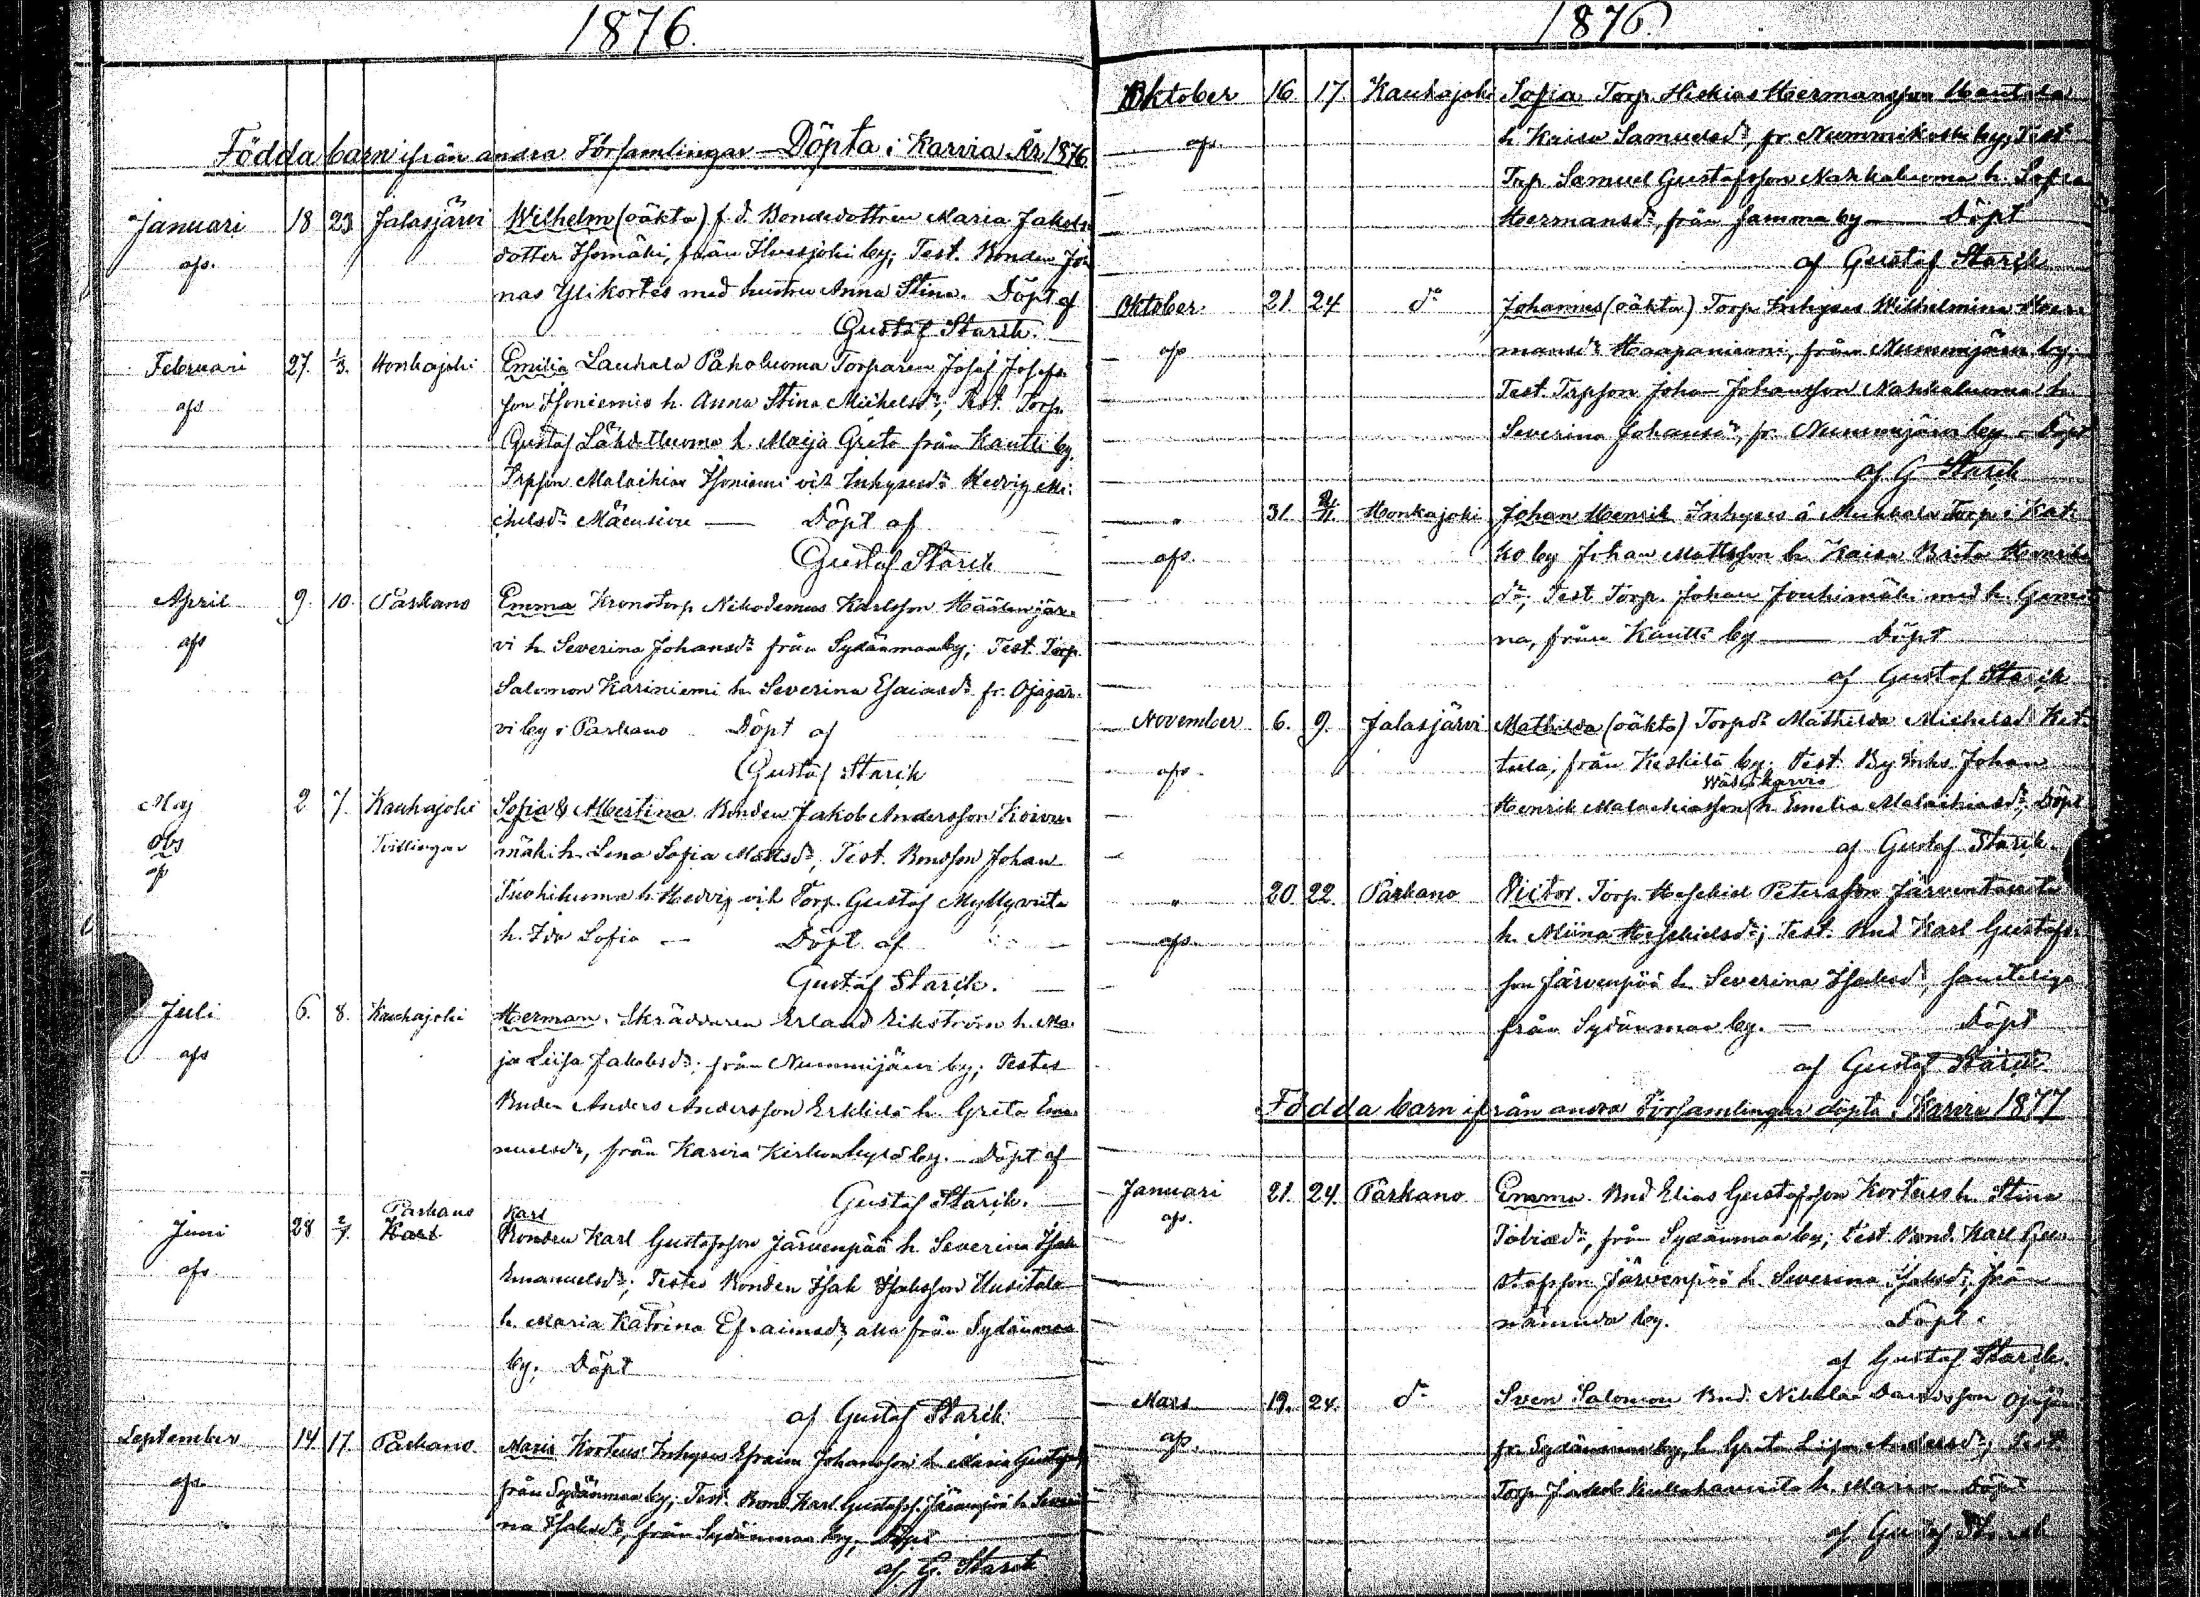 1876.
Födda barn ifrån andra Församlingar Döpta i Karvia År 1876
Januari 18 23 Jalasjärvi Wilhelm (oäkta) f. d. Bondedottren Maria Jakobs
afs. dotter Isomäki, från by; Test. Bonden Jo
nas Ylikortes med hustru Anna Stina. Döpt af
Gustaf Starck.
Februari 27. 1/3. Honkajoki Emilia Lauhala Paholuoma Torparen Josef Josefs
afs son Isoniemis h. Anna Stina Michelsdr, Test. Torp.
Gustaf Lähdeluoma h. Maija Greta från Kantti by.
Trpson Malachias Isoniemi och Inhysesdr Hedvig Mi
chelsdr Döpt af
Gustaf Starck
April 9. 10. Parkano Emma Kronotorp Nikodemus Karlsson Häälinjär-
afs vi h. Severina Johansdr från Sydänmaa by; Test. Torp.
Salomon Kariniemi h. Severina Esaiasdr fr. Ojajär-
vi by i Parkano Döpt af
Gustaf Starck
Maj 2 7. Kauhajoki Sofia & Albertina Bonden Jakob Andersson Koivu
obs Tvillingar mäki h. Lena Sofia Mattsdr, Test. Bondson Johan
afs Tuohiluoma h. Hedvig och Torp. Gustaf Myllyviita
h. Ida Sofia — Döpt af
Gustaf Starck.
Juli 6. 8. Kauhajoki Herman. Skräddaren Erland Ekström h. Ma
afs ja Lisa Jakobsdr, från Nummijärvi by; Testes
Bnden Anders Andersson Erkkilä h. Greta Ema
nuelsdr, från Karvia Kirkonkylä by. Döpt af
Gustaf Starck.
Parkano Karl
Juni 28 2/7. Karl Bonden Karl Gustafsson Järvenpää h. Severina Isak
afs Emanuelsdr; Testes Bonden Isak Isaksson Uusitalo
h. Maria Katrina Efraimsdr, alla från Sydänmaa
by. Döpt
af Gustaf Starck.
September 14 17. Parkano Maria Korteus Inhyses Efraim Johansson h. Maria Gustafsd
afs från Sydänmaa by; Test. Bond. Karl Gustafss. Järvenpää h. Severi
na Isaksdr, från Sydänmaa by, Döpt
af G. Starck
1876.
Oktober 16. 17. Kauhajoki Sofia Torp. Hiskias Hermansson
afs. h. Kaisa Samuelsdr, fr. Nummikoski by; Test
Trp. Samuel Gustafsson Nahkaluoma h. Sofia
Hermansdr, från samma by — Döpt
af Gustaf Starck
Oktober 21. 24 do Johannes (oäkta) Torp. Inhyses Wilhelmina Her
afs mansdr Haapaniemi, från Nummijärvi by;
Test. Trpson Johan Johansson Nahkaluoma h.
Severina Johansdr, fr. Nummijärvi by — Döpt
af G Starck
" 31. 2/11. Honkajoki Johan Henrik Inhyses å Torp i Kat
afs. ko by Johan Mattsson h. Kaisa Brita Henriks
dr; Test. Torp. Johan Jouhimäki med h.
na, från Kantti by — Döpt
af Gustaf Starck
November 6. 9. Jalasjärvi Mathilda (oäkta) Torpdr Mathilda Michelsd Ket
afs. tula, från Keskilä by. Test. Johan
Wäliskarvio
Henrik Malachiasson h. Emelia Malachiasdr, Döpt
af Gustaf Starck.
" 20. 22. Parkano Victor. Torp. Hesekiel Petersson Järventausta
afs. h. Miina Hesekielsdr; Test. Bnd Karl Gustafs
son Järvenpää h. Severina Isaksd, samtliga
från Sydänmaa by. — Döpt
af Gustaf Starck.
Födda barn ifrån andra Församlingar döpta i Karvia 1877
Januari 21. 24. Parkano Emma. Bnd Elias Gustafsson Korteus h. Stina
afs. Tobiasdr, från Sydänmaa by; Test. Bond. Karl Gu
stafsson Järvenpää h. Severina Isaksdr, från
nämnda by. Döpt
af Gustaf Starck.
Mars 19. 24. do Sven Salomon Bnd. Nikolai Davidsson Ojajär
afs. fr. Sydänmaa by, h. Greta Lisa Andersdr; Test.
Torp. Jakob h. Maria Döpt
af Gustaf Starck